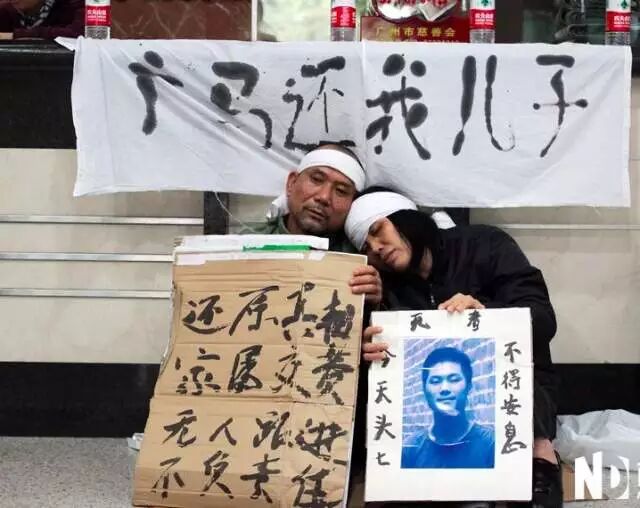 广州市慈善会
广马还我儿子
还原真相
家属交费
无人跟进
不负责任
死者
今天头七
不得安息